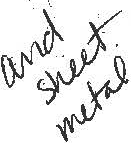 and
sheet
metal